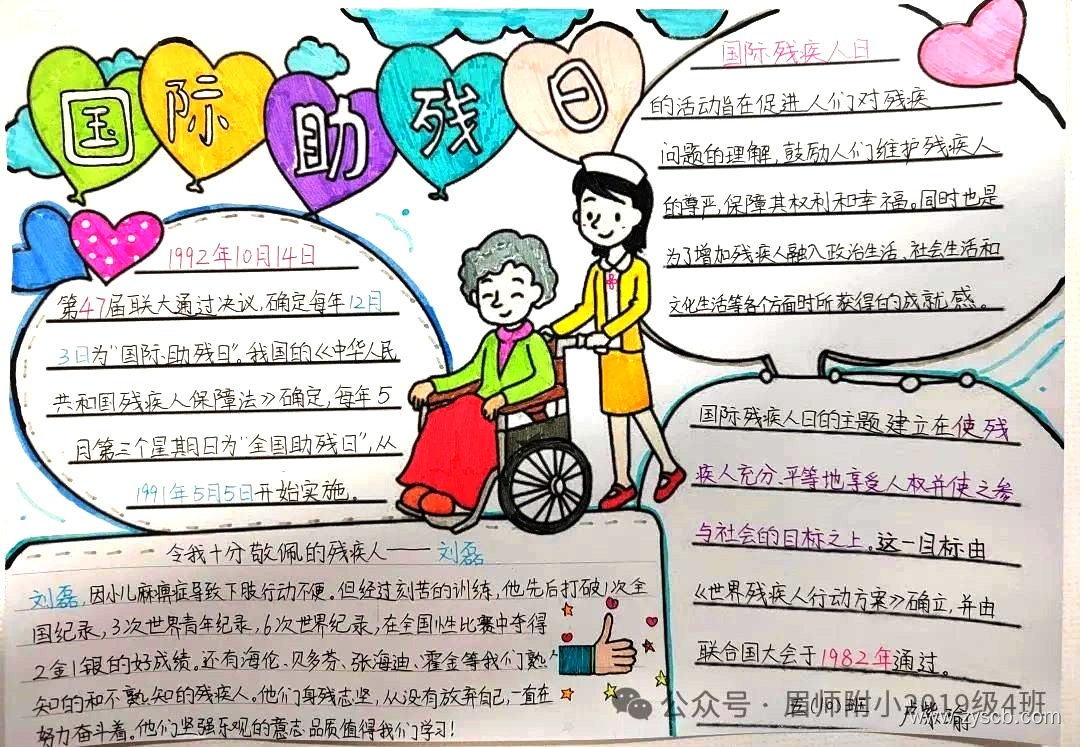 国际助残日
1992年10月14日
第47届联大通过决议,确定每年12月
3日为"国际助残日"。我国的《中华人民
共和国残疾人保障法》确定,每年5
月第三个星期日为"全国助残日",从
1991年5月5日开始实施。
国际残疾人日
的活动旨在促进人们对残疾
问题的理解,鼓励人们维护残疾人
的尊严,保障其权利和幸福。同时也是
为了增加残疾人融入政治生活、社会生活和
文化生活等各个方面时所获得的成就感。
国际残疾人日的主题建立在使残
疾人充分、平等地享受人权并使之参
与社会的目标之上。这一目标由
《世界残疾人行动方案》确立,并由
联合国大会于1982年通过。
令我十分敬佩的残疾人——刘磊
刘磊,因小儿麻痹症导致下肢行动不便。但经过刻苦的训练,他先后打破1次全
国纪录,3次世界青年纪录,6次世界纪录,在全国性比赛中夺得
2金1银的好成绩。还有海伦、贝多芬、张海迪、霍金等我们熟
知的和不熟知的残疾人。他们身残志坚,从没有放弃自己,一直在
努力奋斗着。他们坚强乐观的意志品质值得我们学习!
公众号·眉师附小2019级4班
www.zyscb.com